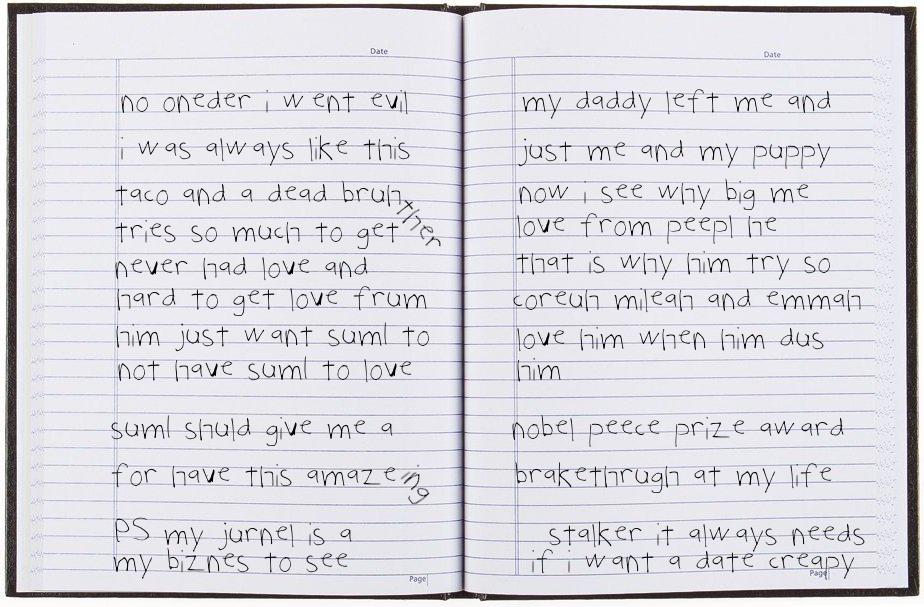 Date
Date
no oneder i went evil
my daddy left me and
i was always like this
just me and my puppy
taco and a dead bruhther
now i see why big me
tries so much to get
love from peepl he
never had love and
that is why him try so
hard to get love frum
coreuh mileah and emmah
him just want suml to
love him when him dus
not have suml to love
him
suml should give me a
nobel peece prize award
for have this amazeing
brakethrugh at my life
PS my jurnel is a
stalker it always needs
my biznes to see
if i want a date creapy
Page
Page